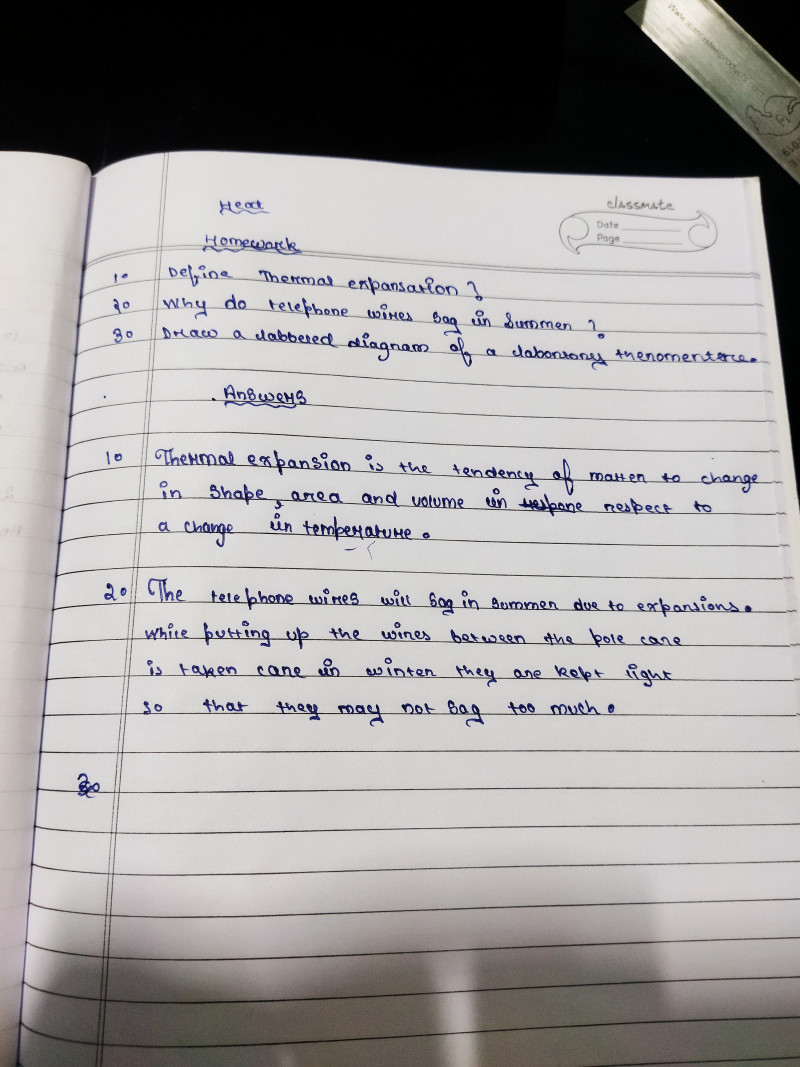 Heat
classmate
Date
Page
Homewark
1. Define Thermal expansation?
2. Why do telephone wires sag in Summer?
3. Draw a labbered diagram of a labontony
Answers
1. Thermal expansion is the tendency of matter to change
in shape, area and volume in respect to
a change in temperature.
2. The telephone wires will sag in summer due to expansions.
While putting up the wires between the pole care
is taken care in winter they are kept light
so that they may not sag too much.